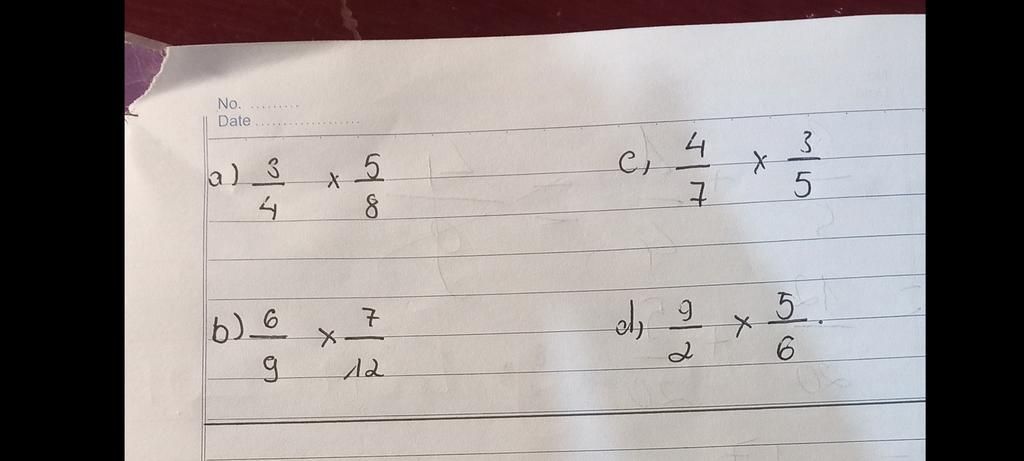 No. .........
Date ...................
a) 3/4 x 5/8
c, 4/7 x 3/5
b) 6/9 x 7/12
d, 9/2 x 5/6.